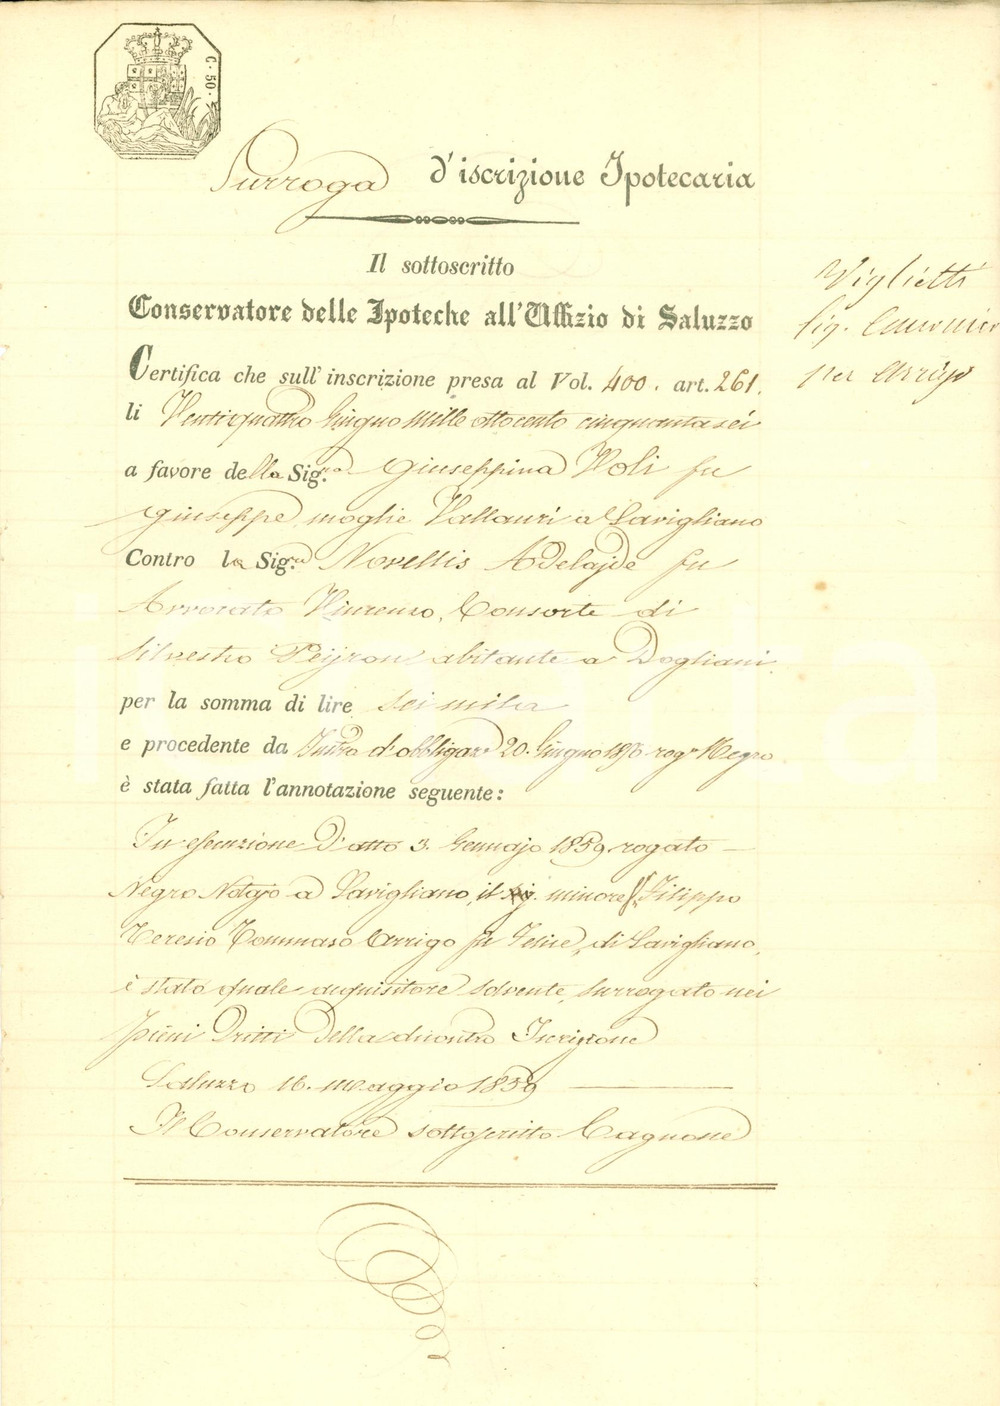 C. 50.
Surroga d'iscrizione Ipotecaria
Il sottoscritto
Conservatore delle Ipoteche all'Uffizio di Saluzzo
Viglietti
Sig.
per Arrigo
Certifica che sull'inscrizione presa al Vol. 400. art. 261.
li Ventiquattro Giugno mille ottocento cinquantasei
a favore della Sig.ra Giuseppina Voli fu
Giuseppe, moglie Vallauri a Savigliano
Contro la Sig.ra Novellis Adelajde fu
Avvocato Vincenzo, Consorte di
Silvestro Peijron abitante a Dogliani
per la somma di lire sei mila
e procedente da d'obbligaz.e 20. Giugno 1856 rog.o Negro
è stata fatta l'annotazione seguente:
In esecuzione d'atto 3. Gennajo 1859. rogato
Negro Notajo a Savigliano, il minore Filippo
Teresio Tommaso Arrigo fu Felice, di Savigliano,
è stato quale acquisitore solvente, surrogato nei
pieni Dritti della Iscrizione
Saluzzo 16. maggio 1859
Il Conservatore sottoscritto Cagnone